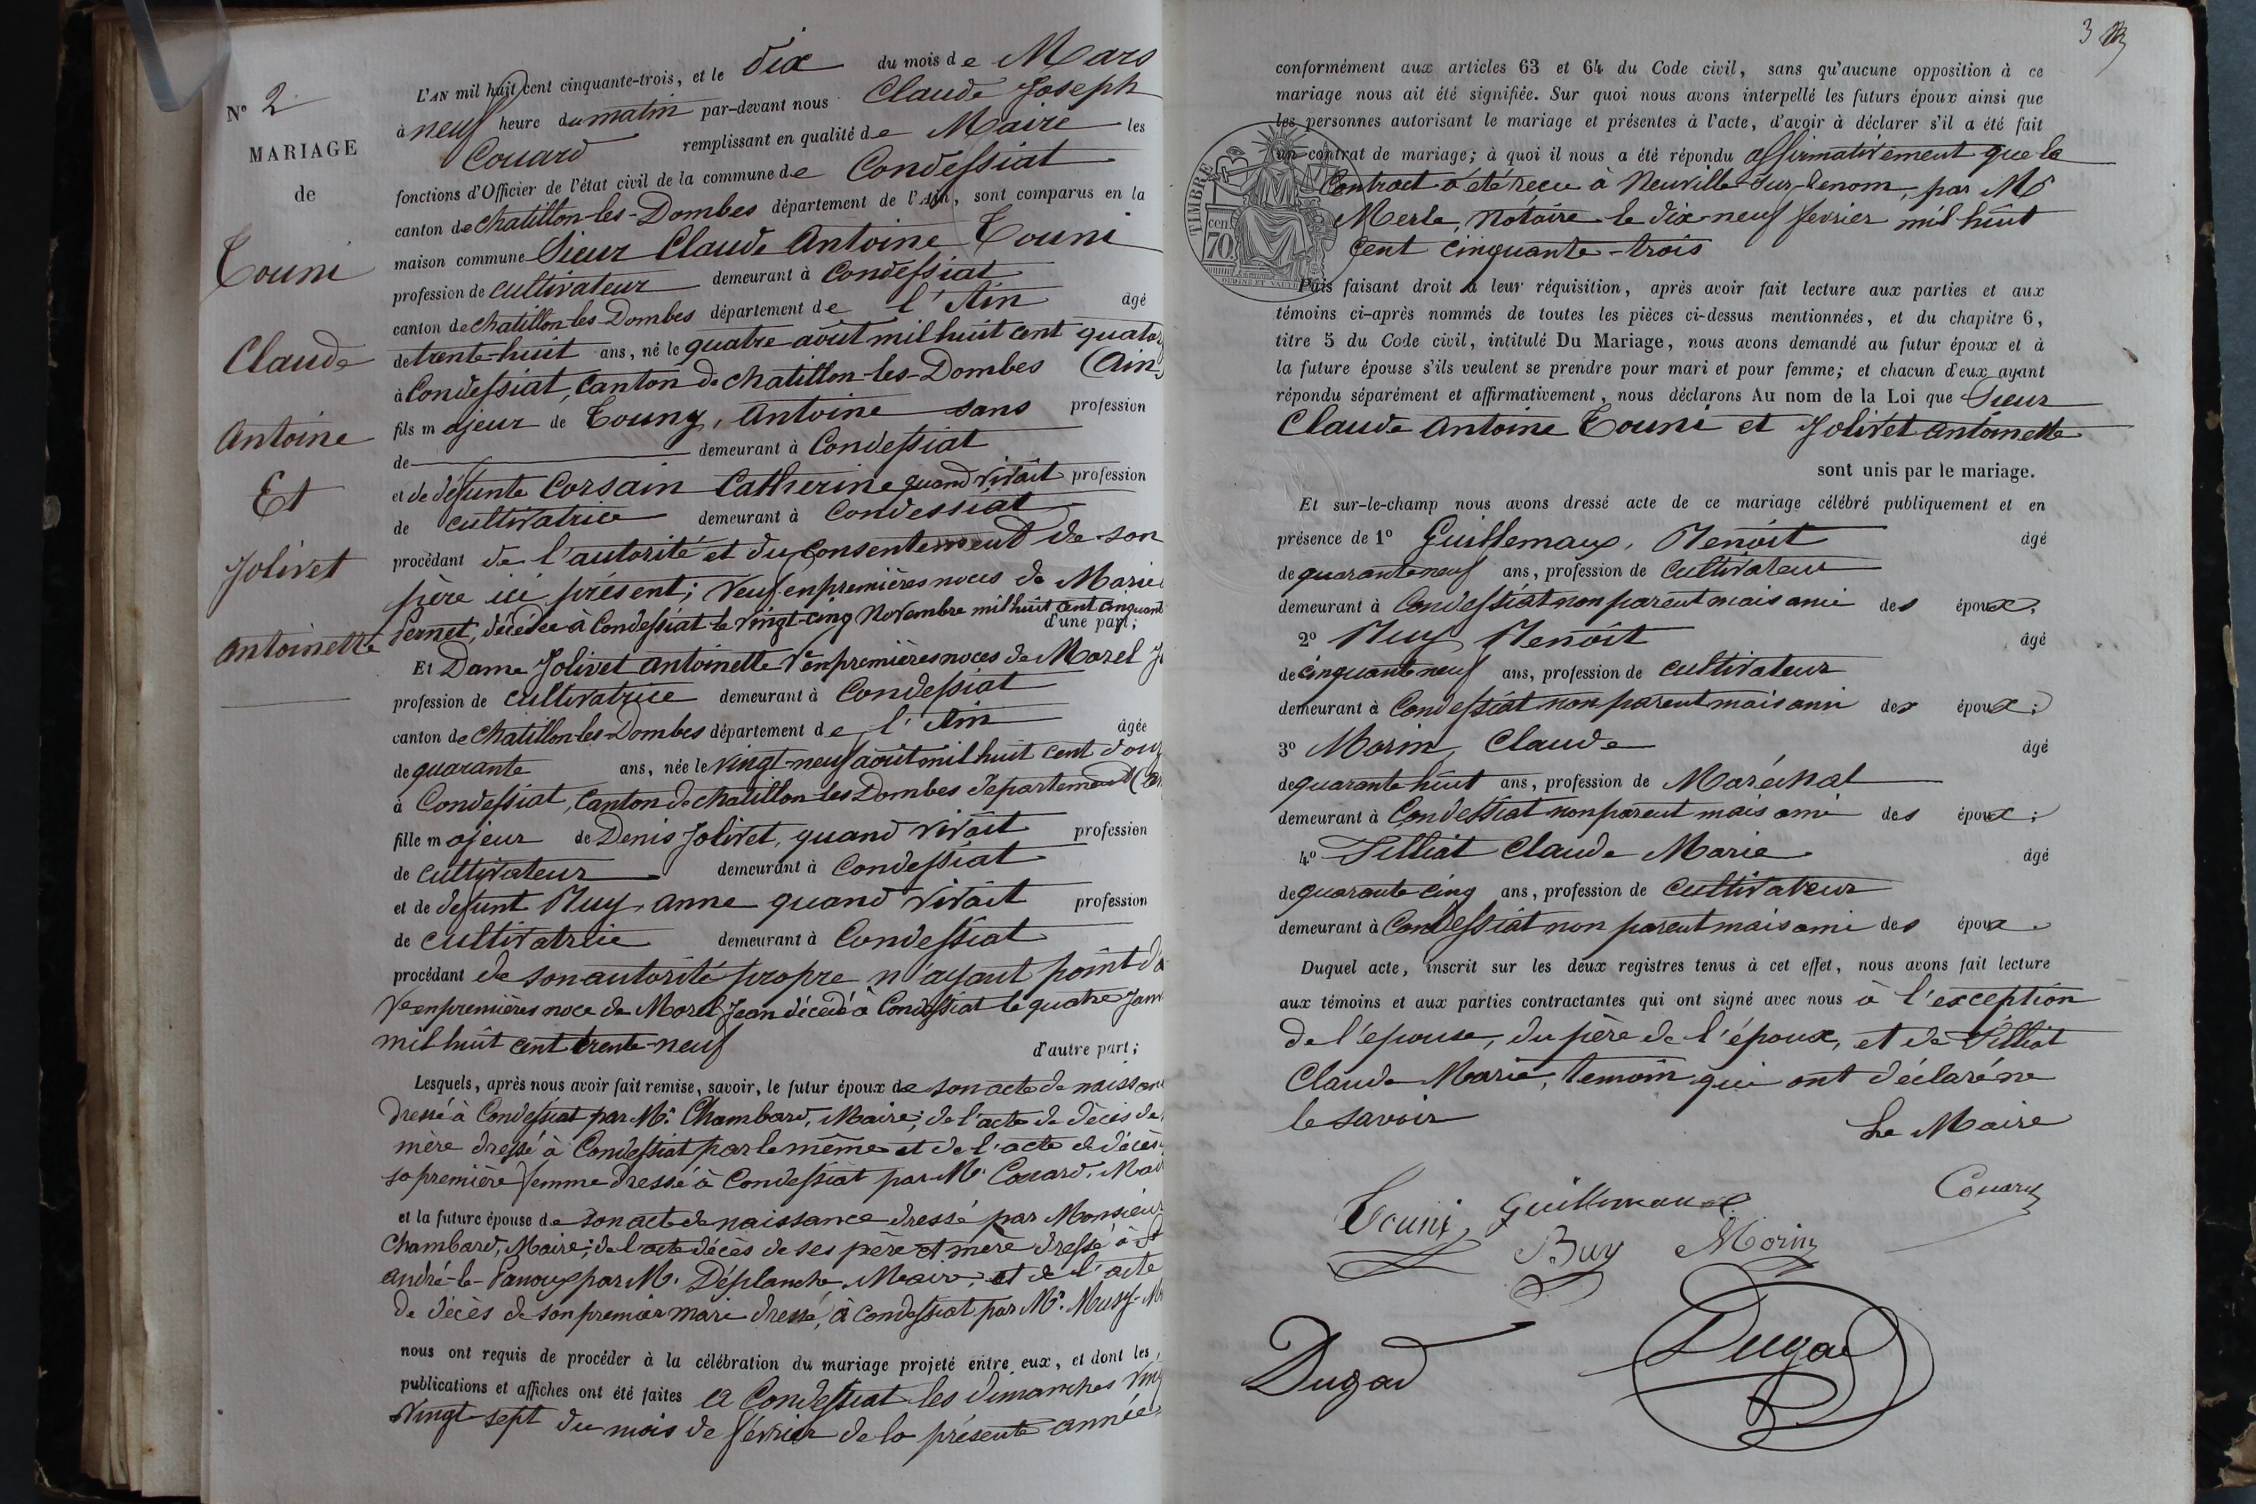 N° 2
MARIAGE
de
Touni
Claude
Antoine
Et
Jolivet
Antoinette
L'AN mil huit cent cinquante-trois, et le dix du mois de Mars
à neuf heure du matin par-devant nous Claude Joseph
Couard remplissant en qualité de Maire les
fonctions d'Officier de l'état civil de la commune de Condessiat
canton de Chatillon-les-Dombes département de l'Ain, sont comparus en la
maison commune Sieur Claude Antoine Touni
profession de cultivateur demeurant à Condessiat
canton de Chatillon-les-Dombes département de l'Ain âgé
de trente-huit ans, né le quatre aout mil huit cent quator
à Condessiat, Canton de Chatillon-les-Dombes (Ain
fils majeur de Touny, Antoine sans profession
de demeurant à Condessiat
et de défunte Corsain Catherine quand vivait profession
de cultivatrice demeurant à Condessiat
procédant de l'autorité et du consentement de son
père ici présent; Veuf en premières noces de Marie
Pernet, décédée à Condessiat le vingt-cinq Novembre mil huit cent cinquant
d'une part;
Et Dame Jolivet Antoinette Ve en premières noces de Morel
profession de cultivatrice demeurant à Condessiat
canton de Chatillon-les-Dombes département de l'Ain âgée
de quarante ans, née le vingt-neuf août mil huit cent dou
à Condessiat, Canton de Chatillon-les-Dombes département
fille majeur de Denis Jolivet, quand vivait profession
de cultivateur demeurant à Condessiat
et de défunt Buy, Anne quand vivait profession
de cultivatrice demeurant à Condessiat
procédant de son autorité propre n'ayant point d'a
Ve en premières noce de Morel Jean décédé à Condessiat le quatre Janv
mil huit cent trente-neuf d'autre part;
Lesquels, après nous avoir fait remise, savoir, le futur époux de son acte de naissan
dressé à Condessiat par Mr. Chambard, Maire; de l'acte de décès de
mère dressé à Condessiat par le même et de l'acte de décès
sa première femme dressé à Condessiat par Mr Couard, Mai
et la future épouse de son acte de naissance dressé par Monsieur
Chambard, Maire; de l'acte décès de ses père et mère dressé à St
André-le-Panoux par Mr. Déplanche Maire, et de l'acte
de décès de son premier mari dressé, à Condessiat par Mr. Musy
nous ont requis de procéder à la célébration du mariage projeté entre eux, et dont les
publications et affiches ont été faites à Condessiat les dimanches ving
vingt-sept du mois de février de la présente année
3
conformément aux articles 63 et 64 du Code civil, sans qu'aucune opposition à ce
mariage nous ait été signifiée. Sur quoi nous avons interpellé les futurs époux ainsi que
les personnes autorisant le mariage et présentes à l'acte, d'avoir à déclarer s'il a été fait
un contrat de mariage; à quoi il nous a été répondu affirmativement que le
Contract a été reçu à Neuville-sur-Renom, par Mr
Merle, Notaire le dix-neuf fevrier mil huit
cent cinquante-trois
TIMBRE
70 cen
Puis faisant droit à leur réquisition, après avoir fait lecture aux parties et aux
témoins ci-après nommés de toutes les pièces ci-dessus mentionnées, et du chapitre 6,
titre 5 du Code civil, intitulé Du Mariage, nous avons demandé au futur époux et à
la future épouse s'ils veulent se prendre pour mari et pour femme; et chacun d'eux ayant
répondu séparément et affirmativement, nous déclarons Au nom de la Loi que Sieur
Claude Antoine Touni et Jolivet Antoinette
sont unis par le mariage.
Et sur-le-champ nous avons dressé acte de ce mariage célébré publiquement et en
présence de 1° Guillemaux, Benoit âgé
de quarante neuf ans, profession de cultivateur
demeurant à Condessiat non parent mais ami des époux.
2° Buy Benoit âgé
de cinquante neuf ans, profession de cultivateur
demeurant à Condessiat non parent mais ami des époux;
3° Morin, Claude âgé
de quarante huit ans, profession de Maréchal
demeurant à Condessiat non parent mais ami des époux;
4° Pilliat Claude Marie âgé
de quarante cinq ans, profession de cultivateur
demeurant à Condessiat non parent mais ami des époux.
Duquel acte, inscrit sur les deux registres tenus à cet effet, nous avons fait lecture
aux témoins et aux parties contractantes qui ont signé avec nous à l'exception
de l'épouse, du père de l'époux, et de Pilliat
Claude Marie, temoin qui ont déclaré ne
le savoir
Le Maire
Touni Guillemaux Couard
Buy Morin
Dugad Dugad